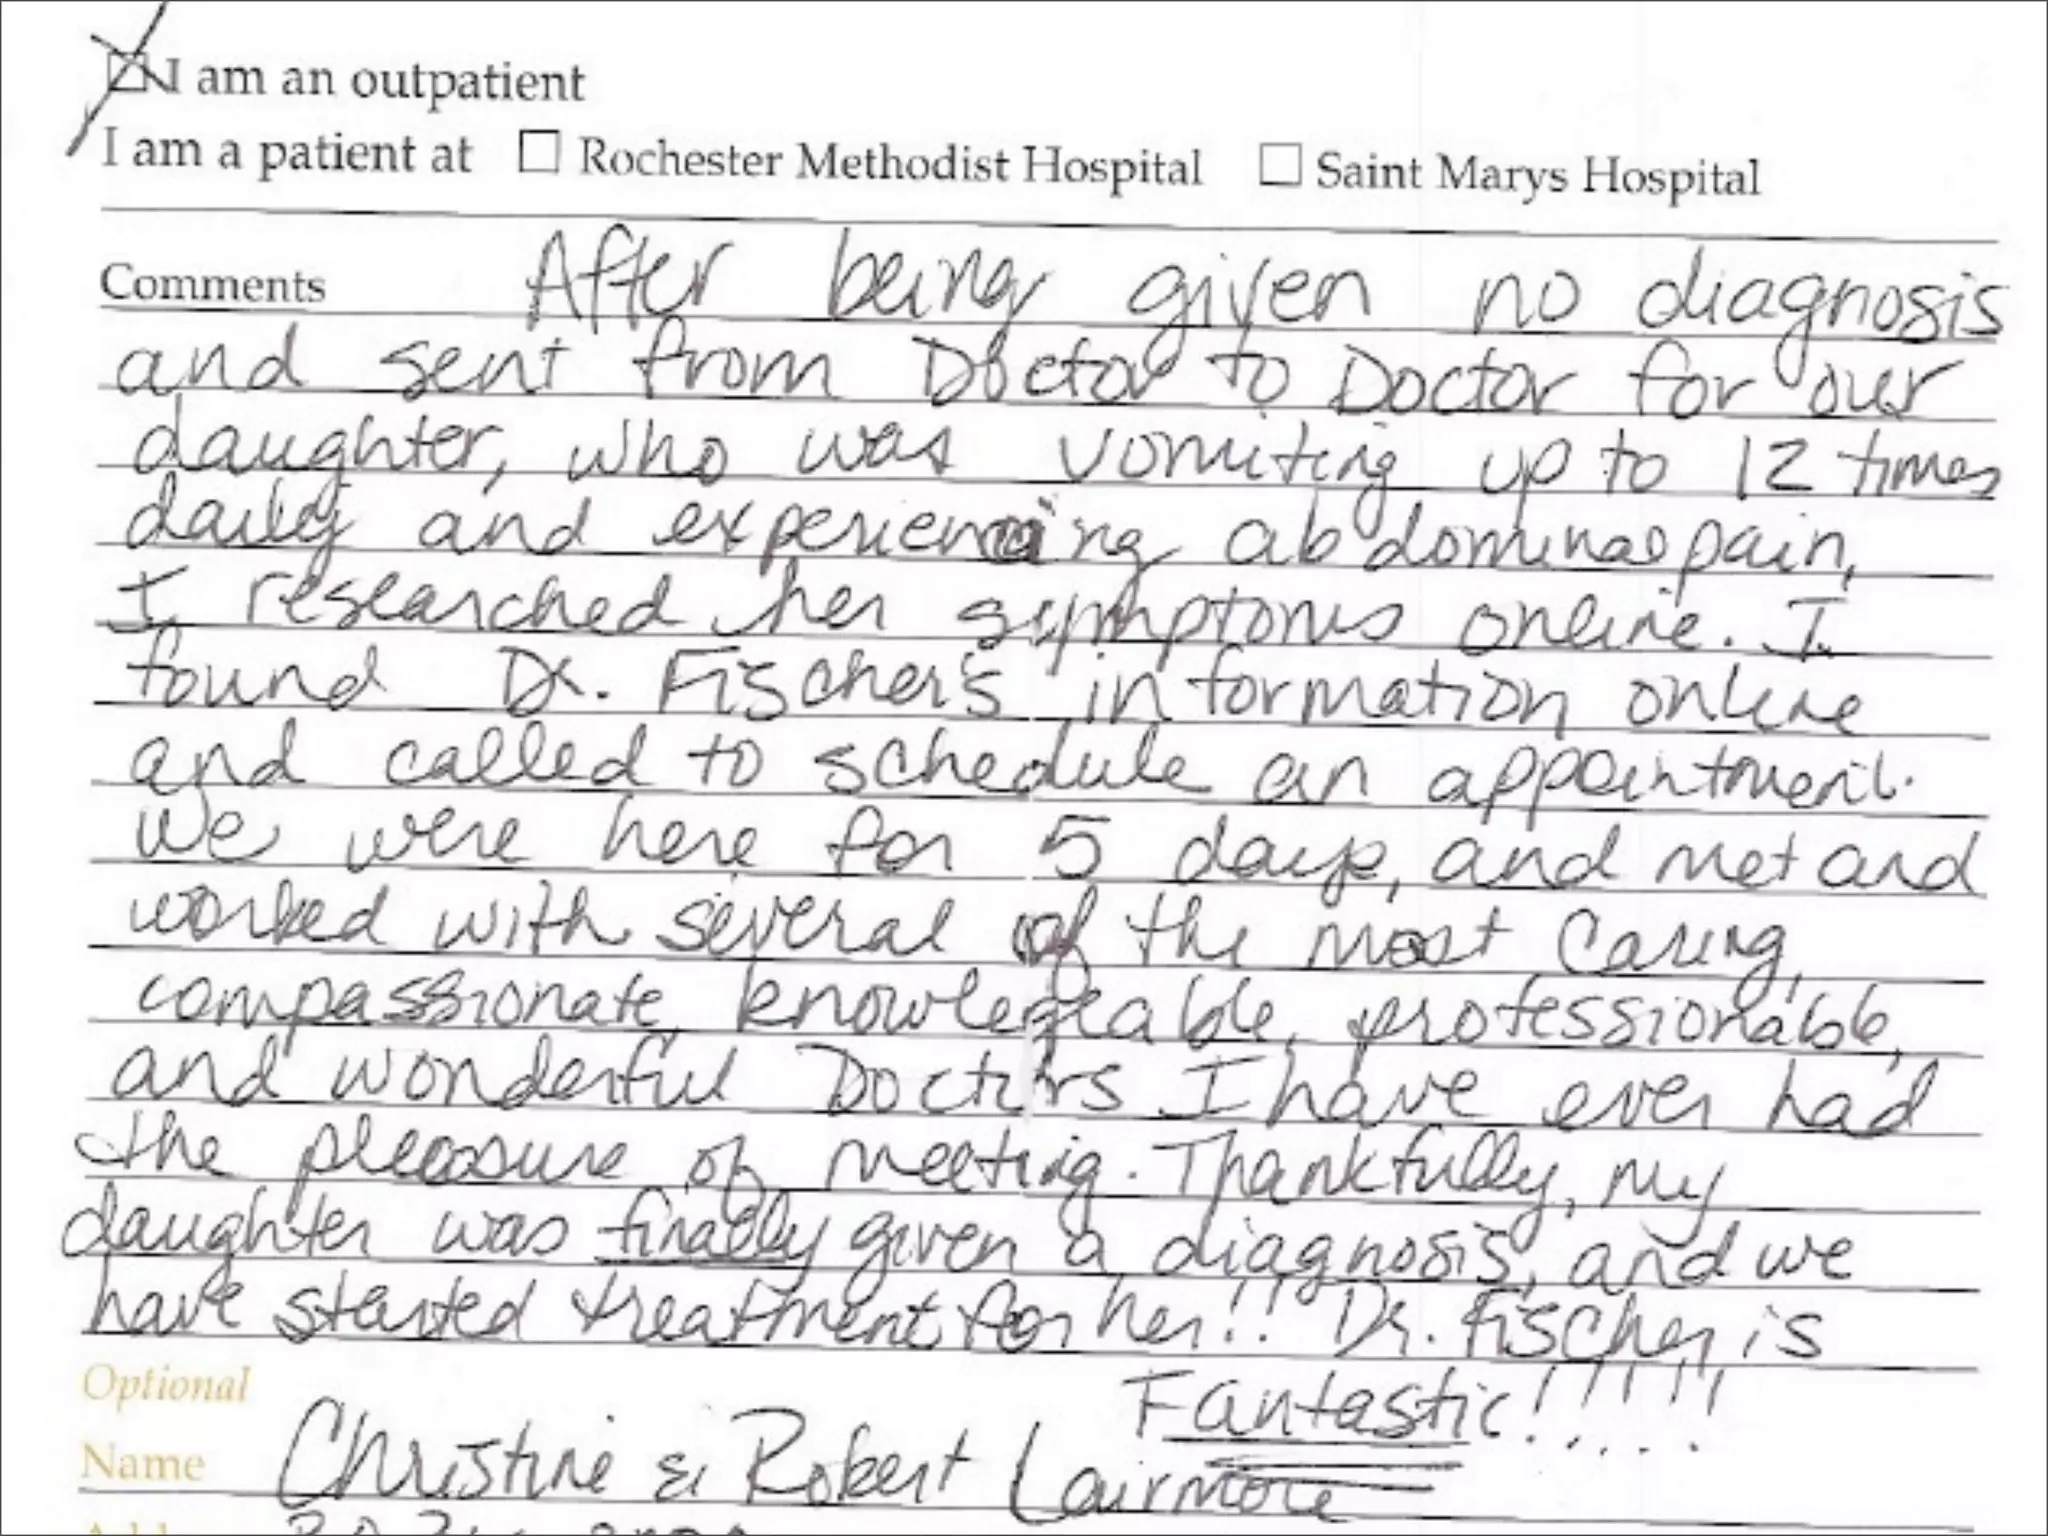 I am an outpatient
I am a patient at □ Rochester Methodist Hospital □ Saint Marys Hospital
Comments After being given no diagnosis
and sent from Doctor to Doctor for our
daughter, who was vomiting up to 12 times
daily and experiencing abdominal pain,
I researched her symptoms online. I
found Dr. Fischer's information online
and called to schedule an appointment.
We were here for 5 days, and met and
worked with several of the most caring,
compassionate, knowledgeable, professionable,
and wonderful Doctors I have ever had
the pleasure of meeting. Thankfully, my
daughter was finally given a diagnosis, and we
have started treatment for her!! Dr. Fischer is
Fantastic!!!!!
Optional
Name Christine & Robert Lairmore